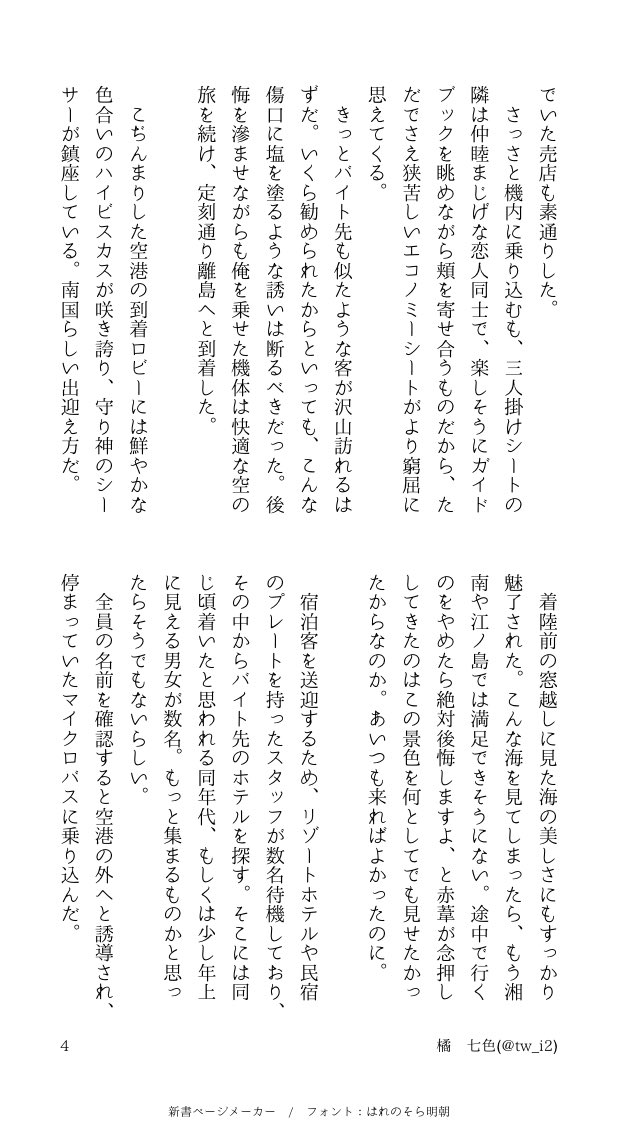 でいた売店も素通りした。
　さっさと機内に乗り込むも、三人掛けシートの
隣は仲睦まじげな恋人同士で、楽しそうにガイド
ブックを眺めながら頬を寄せ合うものだから、た
だでさえ狭苦しいエコノミーシートがより窮屈に
思えてくる。
　きっとバイト先も似たような客が沢山訪れるは
ずだ。いくら勧められたからといっても、こんな
傷口に塩を塗るような誘いは断るべきだった。後
悔を滲ませながらも俺を乗せた機体は快適な空の
旅を続け、定刻通り離島へと到着した。
　こぢんまりした空港の到着ロビーには鮮やかな
色合いのハイビスカスが咲き誇り、守り神のシー
サーが鎮座している。南国らしい出迎え方だ。
　着陸前の窓越しに見た海の美しさにもすっかり
魅了された。こんな海を見てしまったら、もう湘
南や江ノ島では満足できそうにない。途中で行く
のをやめたら絶対後悔しますよ、と赤葦が念押し
してきたのはこの景色を何としてでも見せたかっ
たからなのか。あいつも来ればよかったのに。
　宿泊客を送迎するため、リゾートホテルや民宿
のプレートを持ったスタッフが数名待機しており、
その中からバイト先のホテルを探す。そこには同
じ頃着いたと思われる同年代、もしくは少し年上
に見える男女が数名。もっと集まるものかと思っ
たらそうでもないらしい。
　全員の名前を確認すると空港の外へと誘導され、
停まっていたマイクロバスに乗り込んだ。
4
橘　七色(@tw_i2)
新書ページメーカー　/　フォント：はれのそら明朝